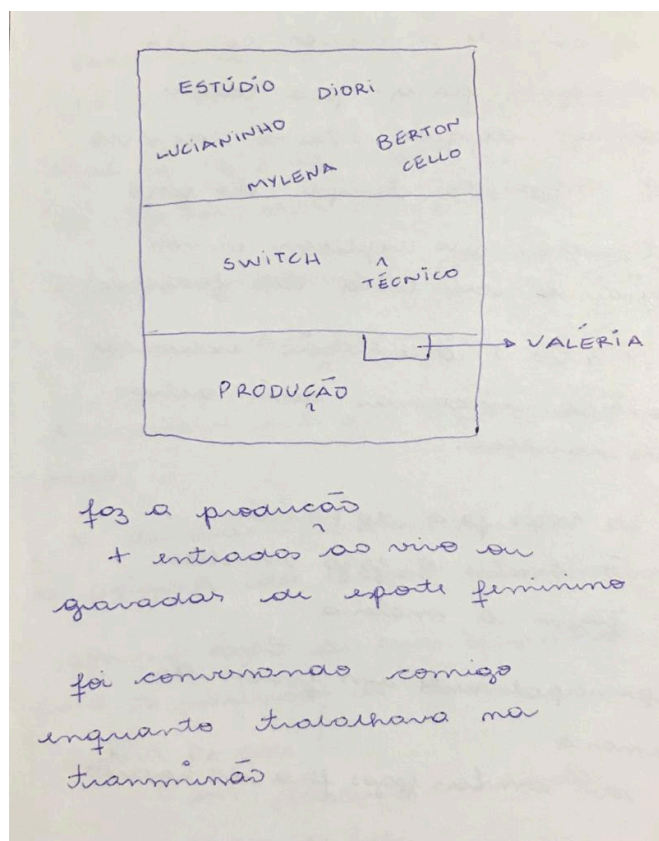 ESTÚDIO DIORI
LUCIANINHO BERTON
CELLO
MYLENA
SWITCH TÉCNICO
VALÉRIA
PRODUÇÃO
faz a produção
+ entradas ao vivo ou
gravadas de esporte feminino
foi conversando comigo
enquanto trabalhava na
transmissão